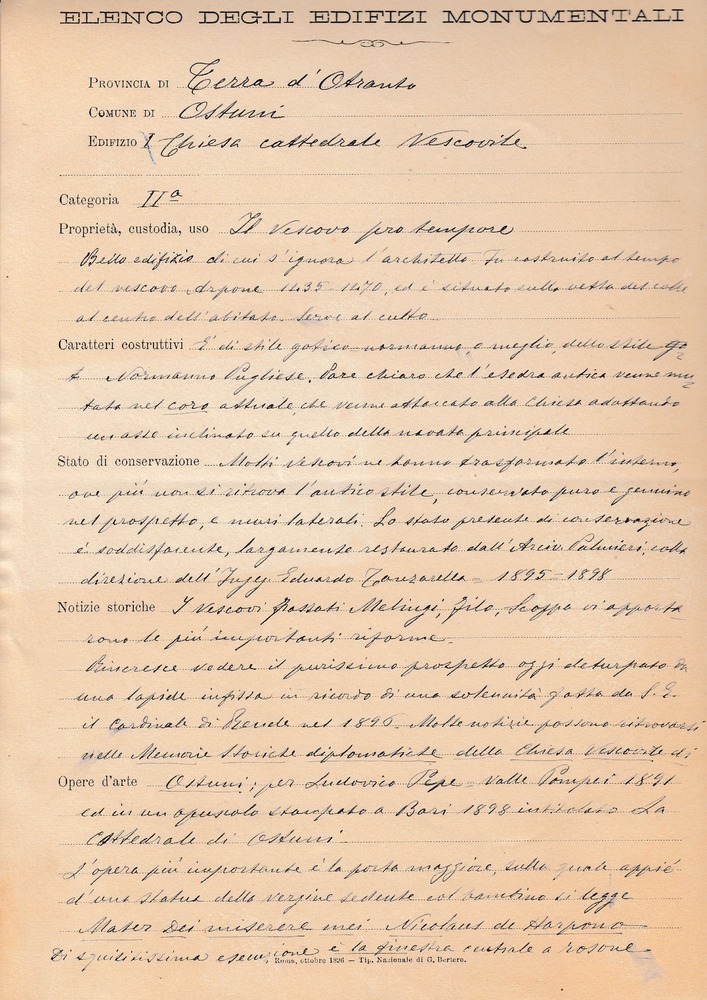 ELENCO DEGLI EDIFIZI MONUMENTALI
PROVINCIA DI Terra d'Otranto
COMUNE DI Ostuni
EDIFIZIO 1 Chiesa cattedrale Vescovile
Categoria IIa
Proprietà, custodia, uso Il Vescovo pro tempore
Bello edifizio di cui s'ignora l'architetto. Fu costruito al tempo
del vescovo Arpone 1435-1470, ed è situato sulla vetta del colle
al centro dell'abitato. Serve al culto
Caratteri costruttivi È di stile gotico-normanno o meglio, dello stile go=
t Normanno Pugliese. Pare chiaro che l'esedra antica venne mu=
tata nel coro attuale, che venne attaccato alla Chiesa adottando
un asse inclinato su quello della navata principale
Stato di conservazione Molti Vescovi ne hanno trasformato l'interno,
ove più non si ritrova l'antico stile, conservato puro e genuino
nel prospetto, e muri laterali. Lo stato presente di conservazione
è soddisfacente, largamente restaurato dall'Arciv. Palmieri, colla
direzione dell'Ingeg. Eduardo Tanzarella - 1895-1898
Notizie storiche I Vescovi passati Melingi, Filo, Scoppa vi apporta
rono le più importanti riforme.
Rincresce vedere il purissimo prospetto oggi deturpato da
una lapide infissa in ricordo di una solennità fatta da S. E.
il Cardinale di Rende nel 1896. Molte notizie possono ritrovarsi
nelle Memorie Storiche diplomatiche della Chiesa Vescovile di
Opere d'arte Ostuni; per Ludovico Pepe - Valle Pompei 1891
ed in un opuscolo stampato a Bari 1898 intitolato La
Cattedrale di Ostuni -
L'opera più importante è la porta maggiore, sulla quale appiè
d'una statua della vergine sedente col bambino si legge
Mater Dei miserere mei Nicolaus de Harpono
Di squisitissima esecuzione è la finestra centrale a rosone
Roma, ottobre 1896 — Tip. Nazionale di G. Bertero.